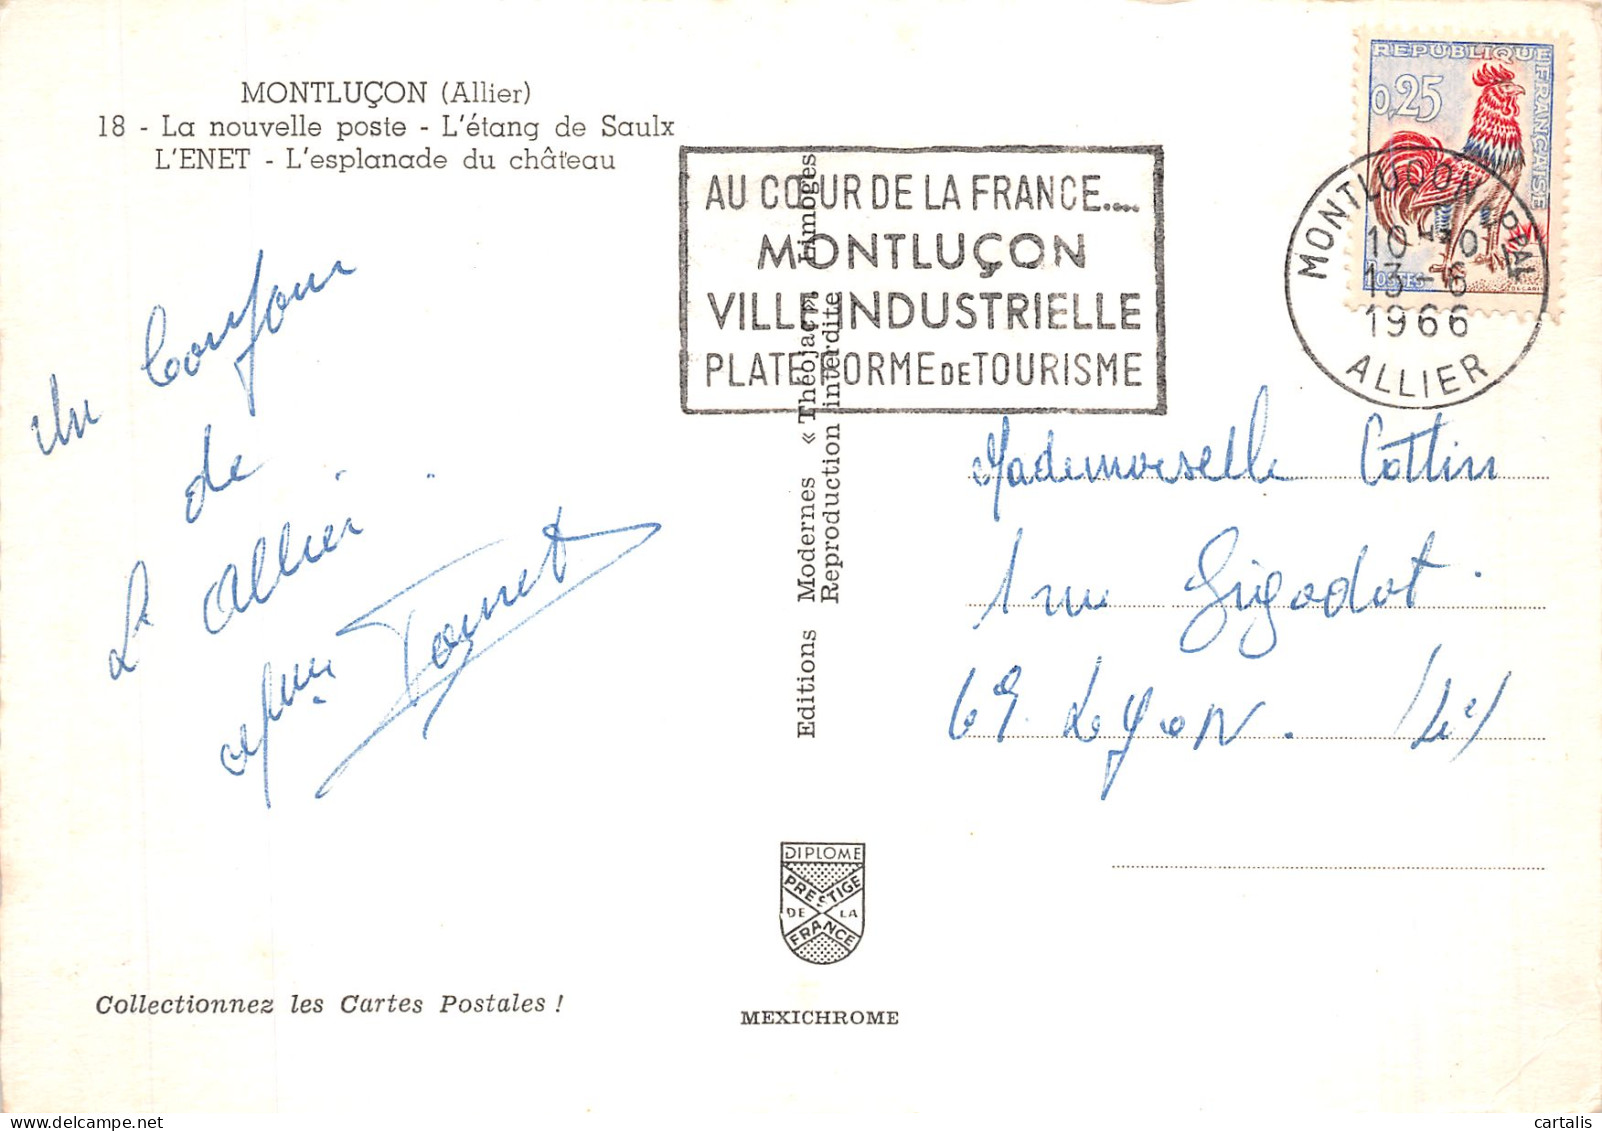 MONTLUÇON (Allier)
18 - La nouvelle poste - L'étang de Saulx
L'ENET - L'esplanade du château
AU CŒUR DE LA FRANCE....
MONTLUÇON
VILLE INDUSTRIELLE
PLATE FORME DE TOURISME
REPUBLIQUE FRANCAISE
0,25
POSTES
MONTLUÇON PPAL
13-6
1966
ALLIER
Un bonjour
de
L'Allier
Tonnet
Editions Modernes « Théojac », Limoges
Reproduction interdite
Mademoiselle Cottin
1 rue Gigodot.
69. LYON.
DIPLOME
PRESTIGE
DE LA
FRANCE
Collectionnez les Cartes Postales !
MEXICHROME
cartalis
www.delcampe.net